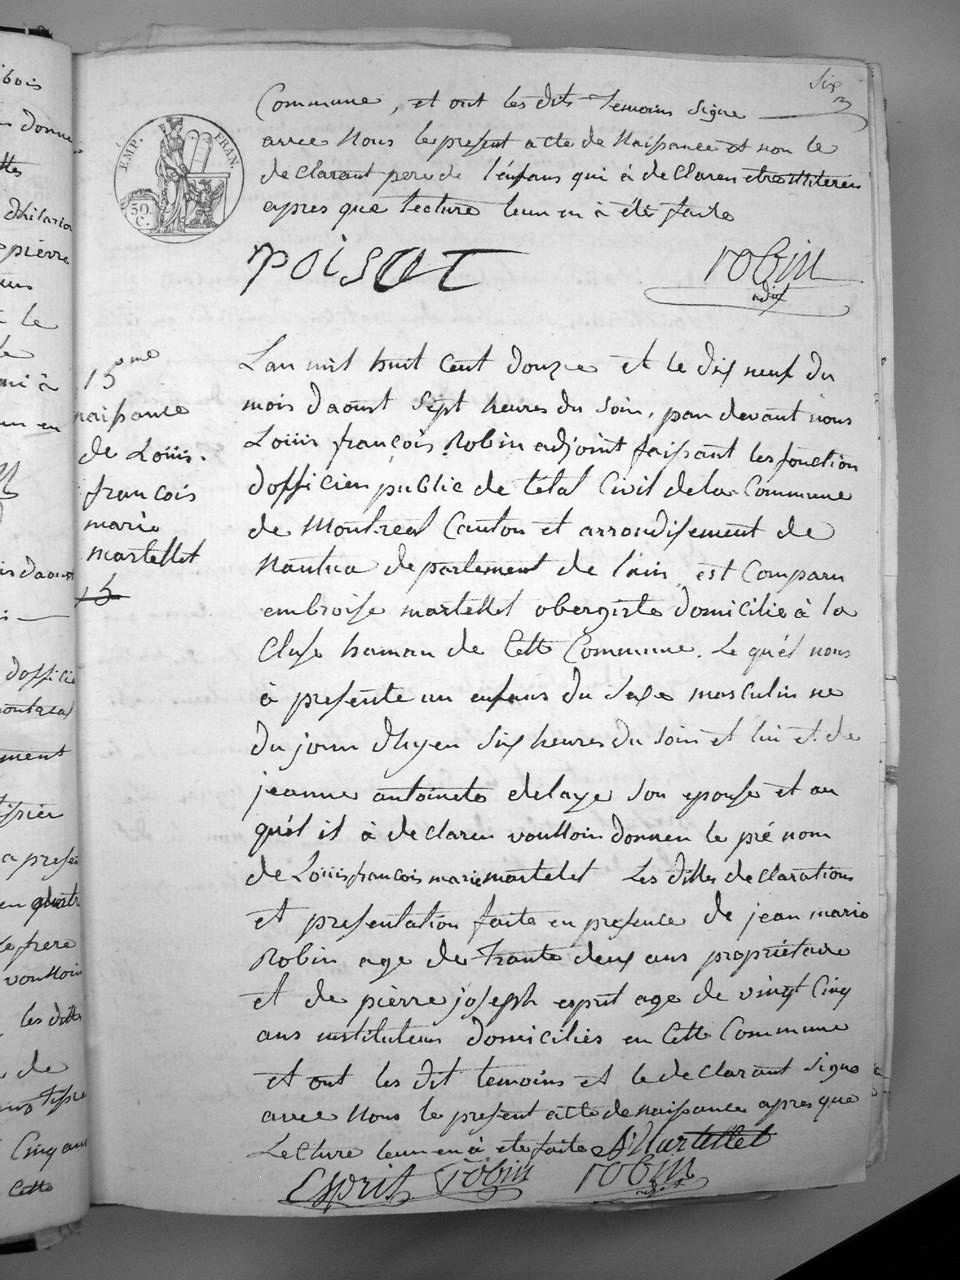 six
Commune, et ont les dits temoins signe
avec nous le present acte de Naissance et non le
declarant pere de l'enfans qui à declaren etre illiteren
apres que lecture leur en à eté faite
EMP. FRAN.
50 C.
POISAT
robin
adjt
15eme
naissance
de Louis.
francois
marie
martellet
15
Lan mil huit Cent douze et le dix neuf du
mois daoust sept heures du soir, par devant nous
Louis françois Robin adjoint faissant les fonction
dofficien public de letat Civil de la Commune
de Montreal Canton et arrondissement de
Nantua departement de lain est Comparu
embroise martellet obergiste domicilié à la
Cluse hamau de Cette Commune. Le quel nous
à presente un enfans du sexe masculin ne
du jour dhyer six heures du soir et lui et de
jeanne antoinete delaye son epouse et au
quel il à declaren voulloir donner le pré nom
de Louis francois marie martelet Les dittes declarations
et presentation faite en presence de jean marie
Robin age de trante deux ans propriétaire
et de pierre joseph esprit age de vingt Cinq
ans instituteur domiciliés en Cette Commune
et ont les dit temoins et le declarant signe
avec nous le present acte de naissance apres que
Lecture leur en à ete faite A Martellet
Esprit robin robin